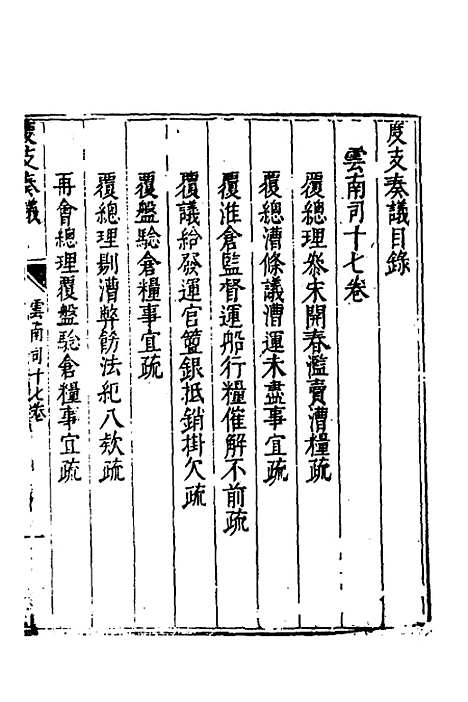 度支奏議目錄
雲南司十七卷
覆總理叅宋開春濫賣漕糧疏
覆總漕條議漕運未盡事宜疏
覆淮倉監督運船行糧催解不前疏
覆議給發運官簠銀抵銷掛欠疏
覆盤驗倉糧事宜疏
覆總理剔漕弊飭法紀八欵疏
再會總理覆盤驗倉糧事宜疏
度支奏議
雲南司十七卷